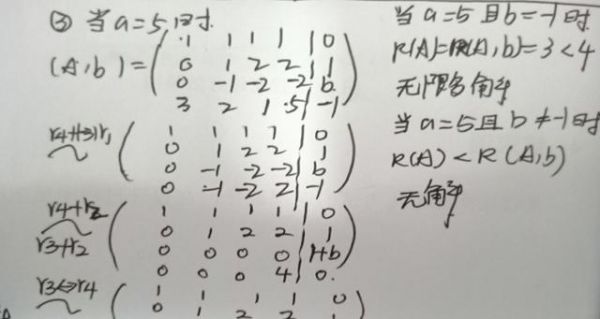 ③ 当a=5时.
(A,b)=
1 1 1 1 | 0
0 1 2 2 | 1
0 -1 -2 -2 | b
3 2 1 5 | -1
r4+(-3)r1
~
1 1 1 1 | 0
0 1 2 2 | 1
0 -1 -2 -2 | b
0 -1 -2 2 | -1
r4+r2
r3+r2
~
1 1 1 1 | 0
0 1 2 2 | 1
0 0 0 0 | 1+b
0 0 0 4 | 0.
r3↔r4
~
1 1 1 1 0
0 1 2 2
当a=5且b=-1时
R(A)=R(A,b)=3<4
无限多解
当a=5且b≠-1时
R(A)<R(A,b)
无解